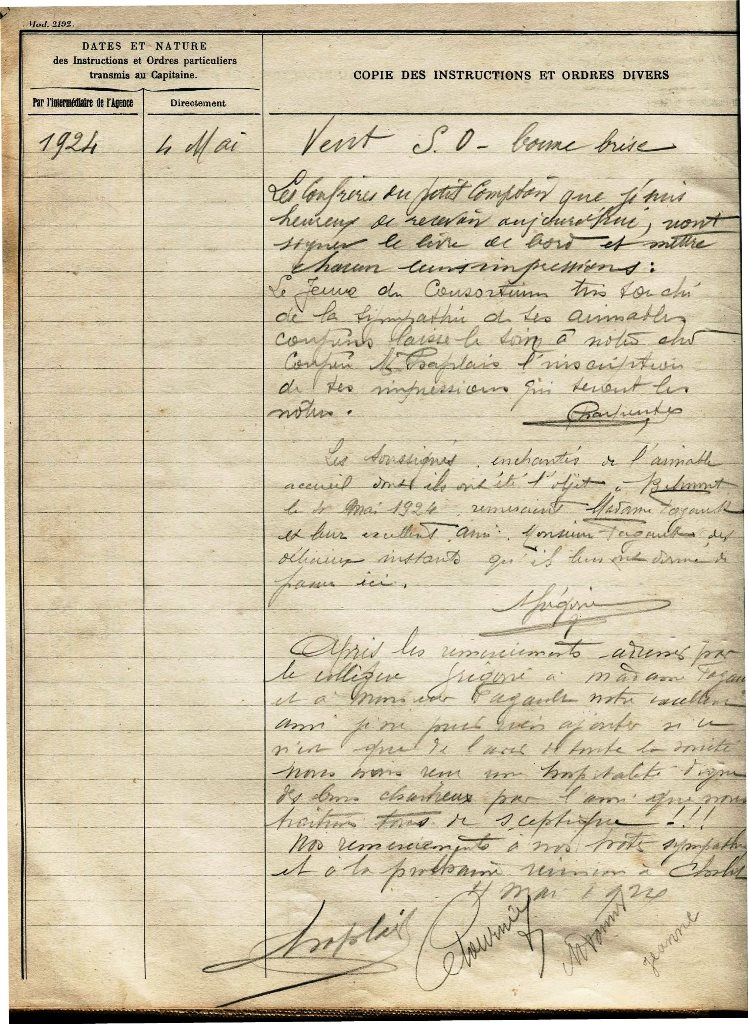 Mod. 2192.
DATES ET NATURE
des Instructions et Ordres particuliers
transmis au Capitaine.
COPIE DES INSTRUCTIONS ET ORDRES DIVERS
Par l'Intermédiaire de l'Agence
Directement
1924 4 Mai Vent S. O - bonne brise
Les Confrères du petit Comptoir que je suis
heureux de recevoir aujourd'hui, vont
signer le livre de bord et mettre
chacun leurs impressions :
Le Jeune du Consortium très touché
de la sympathie de ses aimables
confrères laisse le soin à notre cher
Confrère Mr Chaplais l'inscription
de ses impressions qui seront les
nôtres.
Les soussignés, enchantés de l'aimable
accueil dont ils ont été l'objet à
le 4 Mai 1924, remercient Madame Pagault
et leur excellent ami Monsieur Pagault des
délicieux instants qu'il leur ont donné de
passer ici.
Grégoire
Après les remerciements adressés par
le collègue Grégoire à Madame Pagault
et à Monsieur Pagault notre excellent
ami je ne puis rien ajouter si ce
n'est que de l'avis de toute la société
nous avons reçu une hospitalité digne
des bons chartreux par l'ami que nous
traitions tous de sceptique !!!
Nos remerciements à nos hôtes sympathiques
et à la prochaine réunion à
4 Mai 1924
Chaplais
Jeanne